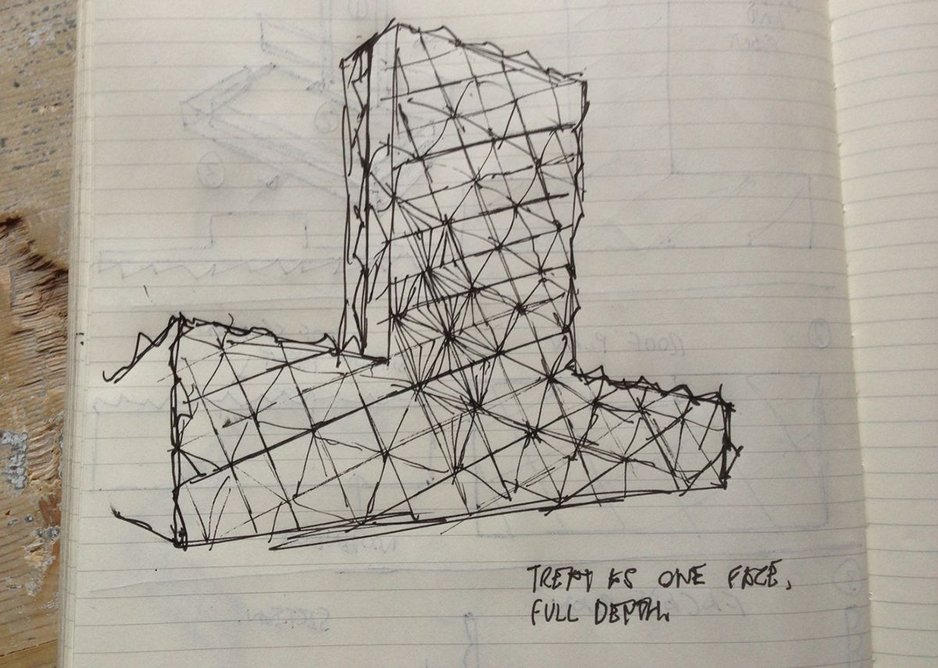 TREAT AS ONE FACE,
FULL DEPTH.